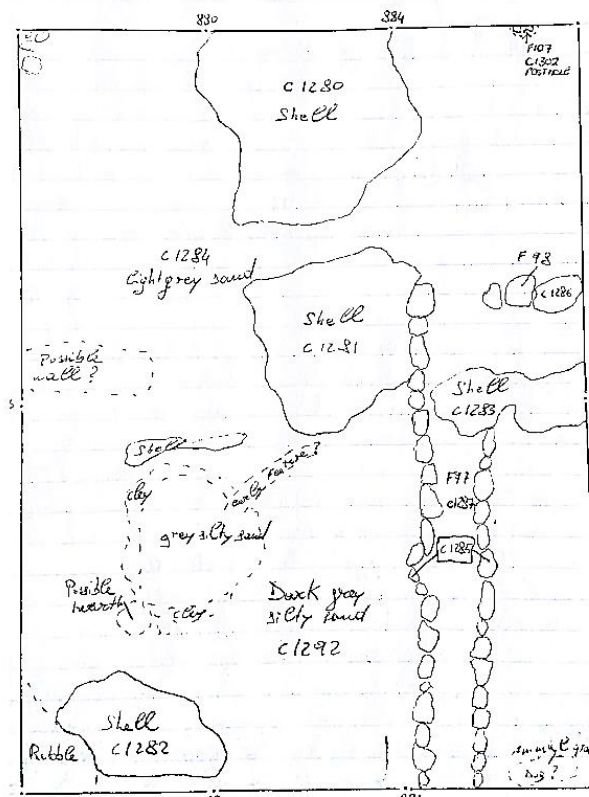 830
884
F107
C1302
POSTHOLE
C1280
Shell
C1284
Lightgrey sand
F98
C1286
Shell
C1281
Possible
wall?
Shell
C1283
Shell
early feature?
clay
F97
C1287
grey silty sand
C1285
Possible
hearth
clay
Dark grey
silty sand
C1292
Shell
C1282
Rubble
Animal
Dug?